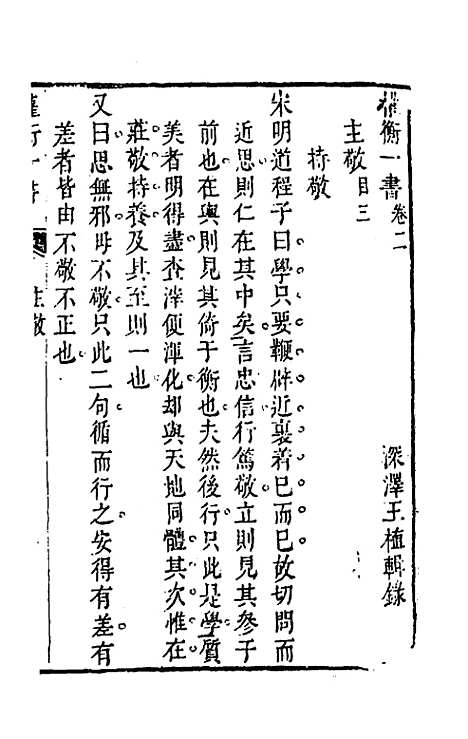 權衡一書卷二
深澤王植輯錄
主敬目三
持敬
宋明道程子曰學只要鞭辟近裏着已而已故切問而
近思則仁在其中矣言忠信行篤敬立則見其參于
前也在輿則見其倚于衡也夫然後行只此是學質
美者明得盡查滓便渾化却與天地同體其次惟在
莊敬持養及其至則一也
又曰思無邪毋不敬只此二句循而行之安得有差有
差者皆由不敬不正也
權衡一書
主敬